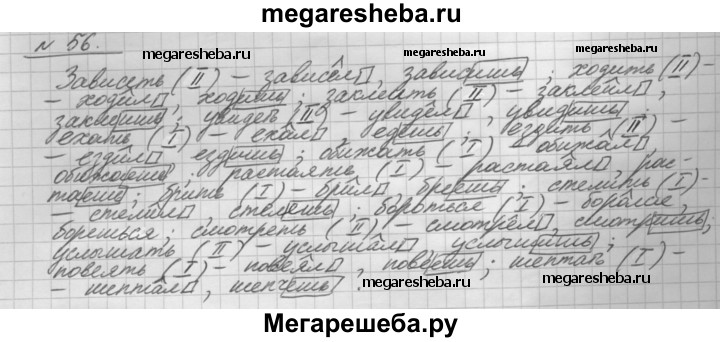 megaresheba.ru
№ 56.
megaresheba.ru megaresheba.ru
Зависеть (II) – зависел, зависишь; ходить (II) –
– ходил, ходишь; заклеить (II) – заклеил,
заклеишь; увидеть (II) – увидел, увидишь;
ехать (I) – ехал, едешь; ездить (II) –
– ездил, ездишь; обижать (I) – обижал,
обижаешь; растаять (I) – растаял, рас-
таешь; брить (I) – брил, бреешь; стелить (I) –
– стелил, стелешь; бороться (I) – боролся,
борешься; смотреть (II) – смотрел, смотришь,
услышать (II) – услышал, услышишь;
повеять (I) – повеял, повеешь; шептать (I) –
– шептал, шепчешь.
megaresheba.ru megaresheba.ru
Мегарешеба.ру